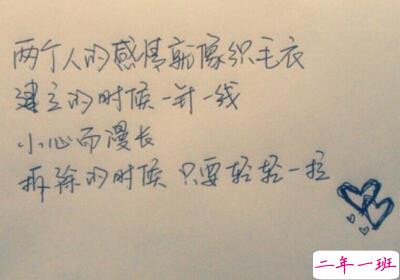 两个人的感情就像织毛衣
建立的时候一针一线
小心而漫长
拆除的时候 只要轻轻一拉
二年一班